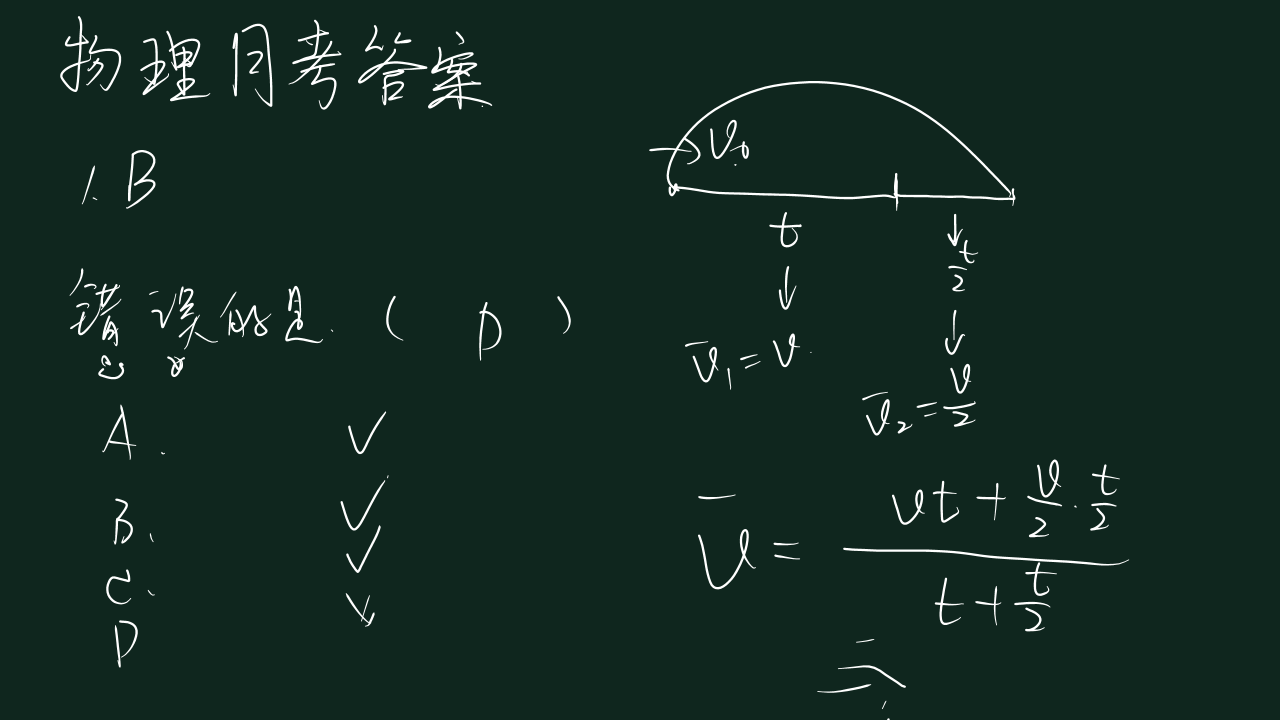 物理月考答案
1. B
错误的是.( D )
A. ✓
B. ✓
C. ✓
D ×
→V₀
t ↓ t/2
↓ ↓
v̄₁=v
v̄₂=v/2
v̄ = (vt+v/2·t/2)/(t+t/2)
=